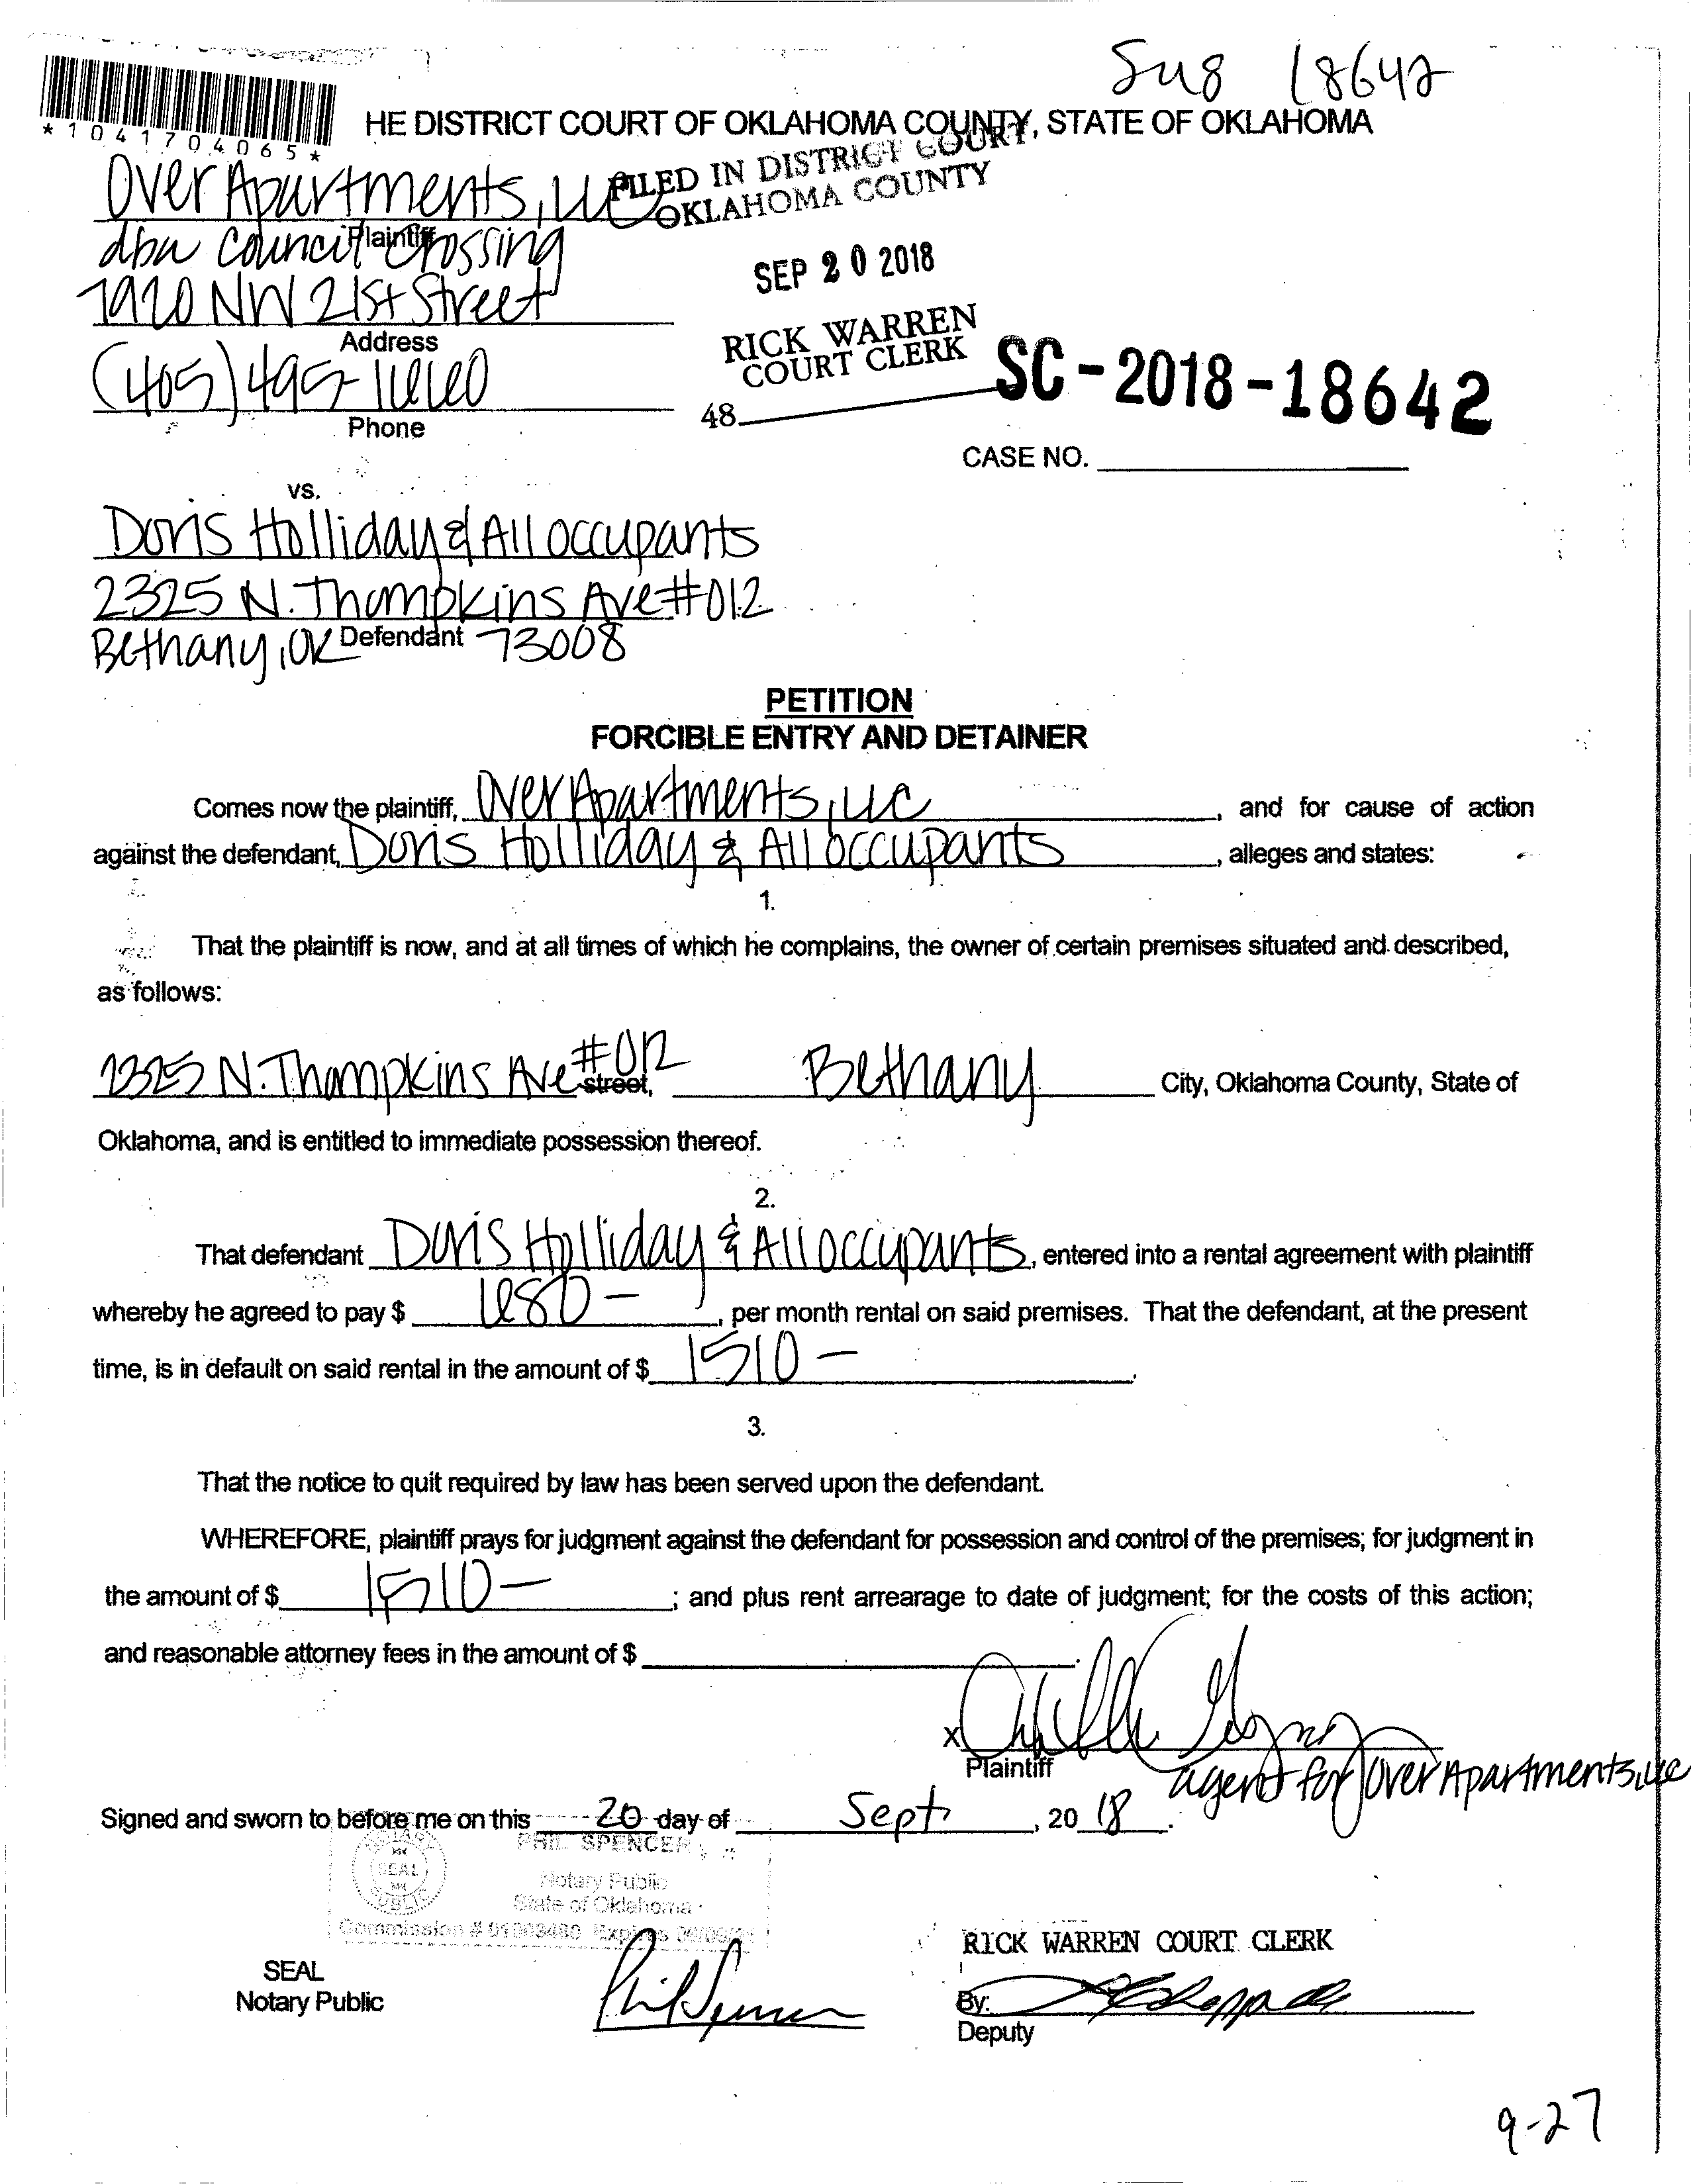 Sug 18642
*1041704065*
HE DISTRICT COURT OF OKLAHOMA COUNTY, STATE OF OKLAHOMA
Over Apartments, LLC
FILED IN DISTRICT COURT
OKLAHOMA COUNTY
Plaintiff
dba Council Crossing
SEP 20 2018
7920 NW 21st Street
Address
RICK WARREN
COURT CLERK
SC-2018-18642
(405) 495-1660
48
Phone
CASE NO.
vs.
Doris Holliday & All occupants
2325 N. Thompkins Ave #012
Bethany, OK 73008
Defendant
PETITION
FORCIBLE ENTRY AND DETAINER
Comes now the plaintiff, Over Apartments, LLC, and for cause of action
against the defendant, Doris Holliday & All occupants, alleges and states:
1.
That the plaintiff is now, and at all times of which he complains, the owner of certain premises situated and described,
as follows:
2325 N. Thompkins Ave #012 street, Bethany City, Oklahoma County, State of
Oklahoma, and is entitled to immediate possession thereof.
2.
That defendant Doris Holliday & All occupants, entered into a rental agreement with plaintiff
whereby he agreed to pay $ 680-, per month rental on said premises. That the defendant, at the present
time, is in default on said rental in the amount of $ 1510-.
3.
That the notice to quit required by law has been served upon the defendant.
WHEREFORE, plaintiff prays for judgment against the defendant for possession and control of the premises; for judgment in
the amount of $ 1510-; and plus rent arrearage to date of judgment; for the costs of this action;
and reasonable attorney fees in the amount of $
X
Plaintiff
agent for Over Apartments, LLC
Signed and sworn to before me on this 20 day of Sept, 20 18.
PHIL SPENCER
SEAL
Notary Public
State of Oklahoma
Commission # 01003480 Expires
RICK WARREN COURT CLERK
SEAL
Notary Public
Phil Spencer
By:
Deputy
9-27